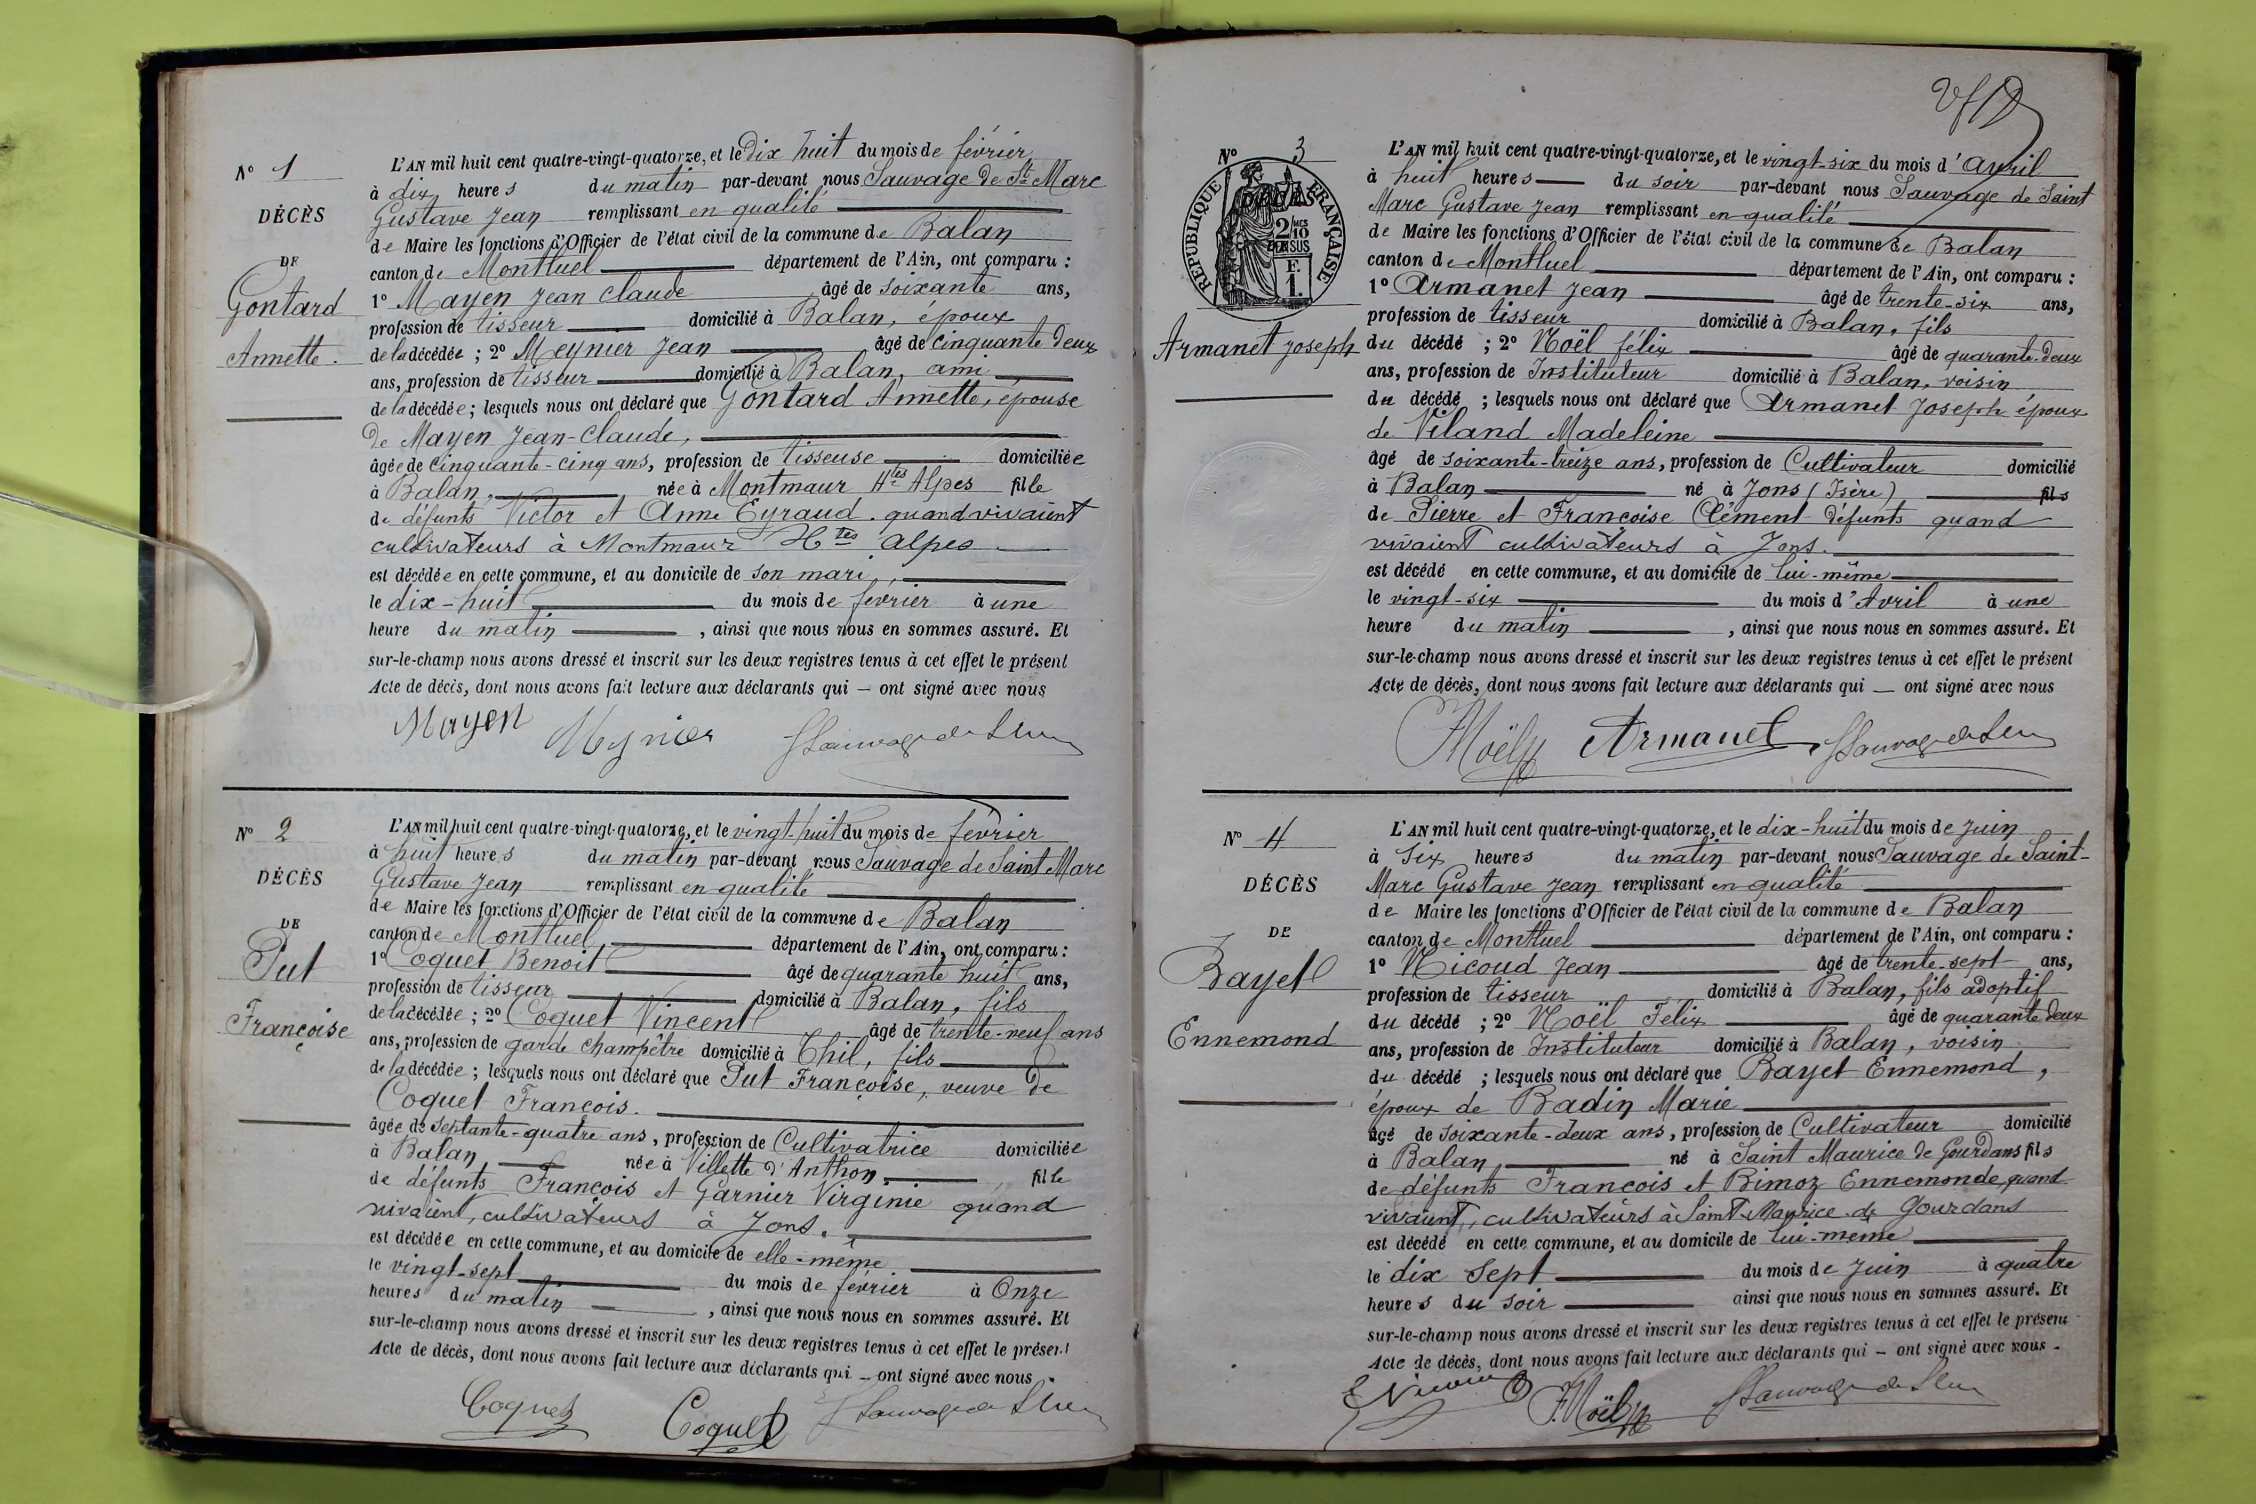 N° 1
DÉCÈS
DE
Gontard
Annette.
L'AN mil huit cent quatre-vingt-quatorze, et le Dix huit du mois de février
à dix heures du matin par-devant nous Sauvage de St Marc
Gustave Jean remplissant en qualité
de Maire les fonctions d'Officier de l'état civil de la commune de Balan
canton de Montluel département de l'Ain, ont comparu :
1° Mayen Jean Claude âgé de soixante ans,
profession de tisseur domicilié à Balan, époux
de la décédée ; 2° Meynier Jean âgé de cinquante deux
ans, profession de tisseur domicilié à Balan, ami
de la décédée ; lesquels nous ont déclaré que Gontard Annette, épouse
De Mayen Jean-Claude,
âgée de cinquante-cinq ans, profession de tisseuse domiciliée
à Balan, née à Montmaur Htes Alpes fille
de défunts Victor et Anne Eyraud. quand vivaient
cultivateurs à Montmaur Htes Alpes
est décédée en cette commune, et au domicile de son mari,
le dix-huit du mois de février à une
heure du matin, ainsi que nous nous en sommes assuré. Et
sur-le-champ nous avons dressé et inscrit sur les deux registres tenus à cet effet le présent
Acte de décès, dont nous avons fait lecture aux déclarants qui — ont signé avec nous
Mayen Meynier
N° 2
DÉCÈS
DE
Put
Françoise
L'AN mil huit cent quatre-vingt-quatorze, et le vingt-huit du mois de février
à huit heures du matin par-devant nous Sauvage de Saint Marc
Gustave Jean remplissant en qualité
de Maire les fonctions d'Officier de l'état civil de la commune de Balan
canton de Montluel département de l'Ain, ont comparu :
1° Coquet Benoit âgé de quarante huit ans,
profession de tisseur domicilié à Balan, fils
de la décédée ; 2° Coquet Vincent âgé de trente-neuf ans
ans, profession de garde champêtre domicilié à Thil, fils
de la décédée ; lesquels nous ont déclaré que Put Françoise, veuve de
Coquet François.
âgée de septante-quatre ans, profession de Cultivatrice domiciliée
à Balan née à Villette d'Anthon, fille
de défunts François et Garnier Virginie quand
vivaient, cultivateurs à Jons.
est décédée en cette commune, et au domicile de elle-même
le vingt-sept du mois de février à Onze
heures du matin, ainsi que nous nous en sommes assuré. Et
sur-le-champ nous avons dressé et inscrit sur les deux registres tenus à cet effet le présent
Acte de décès, dont nous avons fait lecture aux déclarants qui — ont signé avec nous.
Coquet Coquet
N° 3
RÉPUBLIQUE FRANÇAISE
DÉCÈS
2/10 MES
EN SUS
F.
1.
Armanet Joseph
L'AN mil huit cent quatre-vingt-quatorze, et le vingt-six du mois d'avril
à huit heures du soir par-devant nous Sauvage de Saint
Marc Gustave Jean remplissant en qualité
de Maire les fonctions d'Officier de l'état civil de la commune de Balan
canton de Montluel département de l'Ain, ont comparu :
1° Armanet Jean âgé de trente-six ans,
profession de tisseur domicilié à Balan, fils
du décédé ; 2° Noël félix âgé de quarante-deux
ans, profession de Instituteur domicilié à Balan, voisin
du décédé ; lesquels nous ont déclaré que Armanet Joseph époux
de Viland Madeleine
âgé de soixante-treize ans, profession de Cultivateur domicilié
à Balan né à Jons (Isère) fils
de Pierre et Françoise Clément défunts quand
vivaient cultivateurs à Jons.
est décédé en cette commune, et au domicile de lui-même
le vingt-six du mois d'Avril à une
heure du matin, ainsi que nous nous en sommes assuré. Et
sur-le-champ nous avons dressé et inscrit sur les deux registres tenus à cet effet le présent
Acte de décès, dont nous avons fait lecture aux déclarants qui — ont signé avec nous
F. Noël Armanet
N° 4
DÉCÈS
DE
Bayet
Ennemond
L'AN mil huit cent quatre-vingt-quatorze, et le dix-huit du mois de juin
à six heures du matin par-devant nous Sauvage de Saint-
Marc Gustave Jean remplissant en qualité
de Maire les fonctions d'Officier de l'état civil de la commune de Balan
canton de Montluel département de l'Ain, ont comparu :
1° Nicoud Jean âgé de trente-sept ans,
profession de tisseur domicilié à Balan, fils adoptif
du décédé ; 2° Noël Félix âgé de quarante deux
ans, profession de Instituteur domicilié à Balan, voisin
du décédé ; lesquels nous ont déclaré que Bayet Ennemond,
époux de Badin Marie
âgé de soixante-deux ans, profession de Cultivateur domicilié
à Balan né à Saint Maurice de Gourdans fils
de défunts François et Bimoz Ennemonde, quand
vivaient, cultivateurs à Saint-Maurice de Gourdans
est décédé en cette commune, et au domicile de lui-même
le dix sept du mois de juin à quatre
heures du soir ainsi que nous nous en sommes assuré. Et
sur-le-champ nous avons dressé et inscrit sur les deux registres tenus à cet effet le présent
Acte de décès, dont nous avons fait lecture aux déclarants qui — ont signé avec nous.
F. Noël